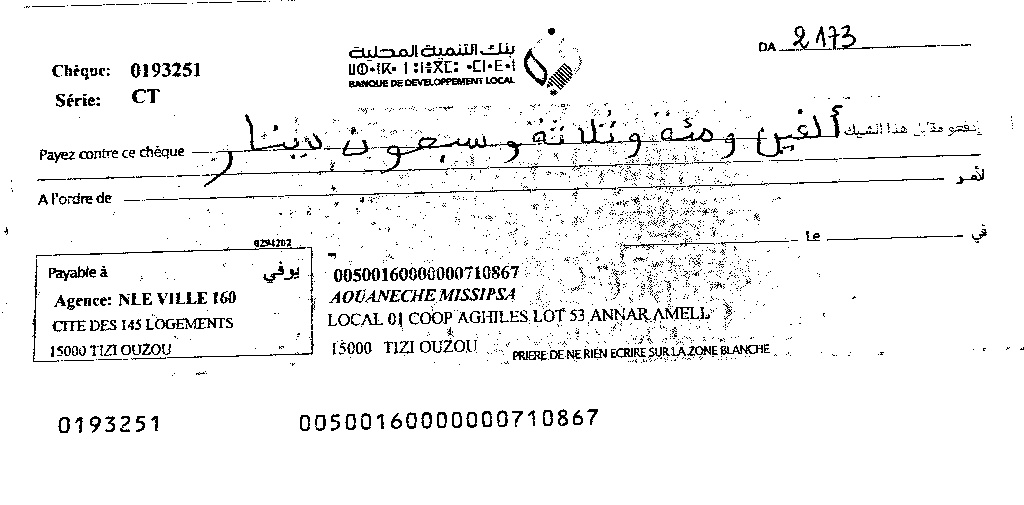 DA 2173
بنك التنمية المحلية
ⵓⵙ•ⵏⴽ• ⵏ ⵓⵏⴻⴳⵎⵓ •ⴷⵉ•ⴹ•ⵏ
BANQUE DE DEVELOPPEMENT LOCAL
Chèque: 0193251
Série: CT
Payez contre ce chèque ألفين ومئة وثلاثة وسبعون دينار إدفعو مقابل هذا الشيك
A l'ordre de لأمر
في le
0294202
Payable à يوفي
Agence: NLE VILLE 160
CITE DES 145 LOGEMENTS
15000 TIZI OUZOU
00500160000000710867
AOUANECHE MISSIPSA
LOCAL 01 COOP AGHILES LOT 53 ANNAR AMELL
15000 TIZI OUZOU
PRIERE DE NE RIEN ECRIRE SUR LA ZONE BLANCHE
0193251 00500160000000710867